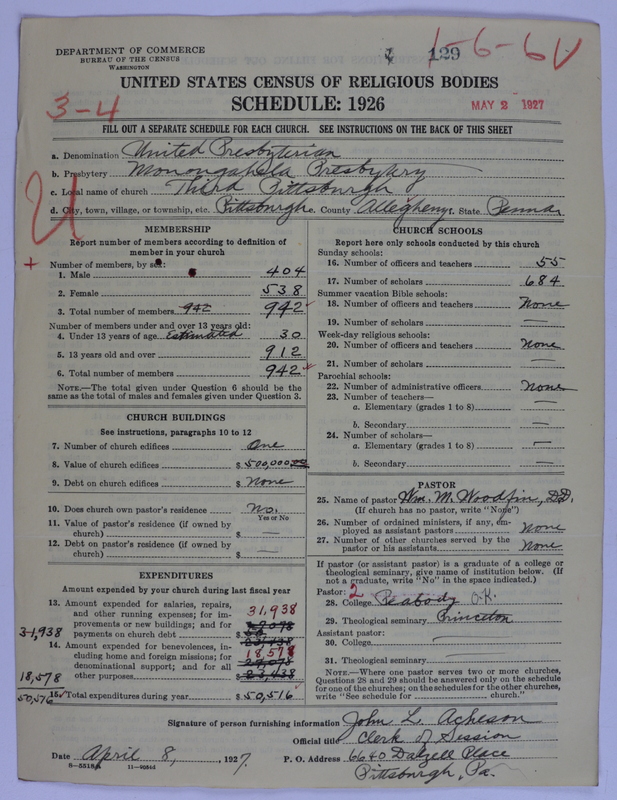 DEPARTMENT OF COMMERCE
BUREAU OF THE CENSUS
WASHINGTON
129
1-6-6V
UNITED STATES CENSUS OF RELIGIOUS BODIES
SCHEDULE: 1926
3-4
MAY 2 1927
FILL OUT A SEPARATE SCHEDULE FOR EACH CHURCH. SEE INSTRUCTIONS ON THE BACK OF THIS SHEET
a. Denomination United Presbyterian
b. Presbytery Monongahela Presbytery
c. Local name of church Third Pittsburgh
d. City, town, village, or township, etc. Pittsburgh e. County Allegheny f. State Penna.
U
MEMBERSHIP
Report number of members according to definition of
member in your church
Number of members, by sex:
1. Male 404
2. Female 538
3. Total number of members 942 942
Number of members under and over 13 years old:
4. Under 13 years of age Estimated 30
5. 13 years old and over 912
6. Total number of members 942
NOTE.—The total given under Question 6 should be the
same as the total of males and females given under Question 3.
CHURCH BUILDINGS
See instructions, paragraphs 10 to 12
7. Number of church edifices One
8. Value of church edifices $ 500,000.00
9. Debt on church edifices $ None
10. Does church own pastor's residence No.
Yes or No
11. Value of pastor's residence (if owned by
church) $ —
12. Debt on pastor's residence (if owned by
church) $ —
EXPENDITURES
Amount expended by your church during last fiscal year
13. Amount expended for salaries, repairs,
and other running expenses; for im-
provements or new buildings; and for
payments on church debt $ 31,938
31,938
14. Amount expended for benevolences, in-
cluding home and foreign missions; for
denominational support; and for all
other purposes $ 18,578
18,578
50,516 15. Total expenditures during year $ 50,516
CHURCH SCHOOLS
Report here only schools conducted by this church
Sunday schools:
16. Number of officers and teachers 55
17. Number of scholars 684
Summer vacation Bible schools:
18. Number of officers and teachers None
19. Number of scholars —
Week-day religious schools:
20. Number of officers and teachers None
21. Number of scholars —
Parochial schools:
22. Number of administrative officers None
23. Number of teachers—
a. Elementary (grades 1 to 8) —
b. Secondary —
24. Number of scholars—
a. Elementary (grades 1 to 8) —
b. Secondary —
PASTOR
25. Name of pastor Wm. M. Woodfin, D.D.
(If church has no pastor, write "None")
26. Number of ordained ministers, if any, em-
ployed as assistant pastors None
27. Number of other churches served by the
pastor or his assistants None
If pastor (or assistant pastor) is a graduate of a college or
theological seminary, give name of institution below. (If
not a graduate, write "No" in the space indicated.)
Pastor: 2
28. College Peabody O.K.
29. Theological seminary Princeton
Assistant pastor:
30. College —
31. Theological seminary —
NOTE.—Where one pastor serves two or more churches,
Questions 28 and 29 should be answered only on the schedule
for one of the churches; on the schedules for the other churches,
write "See schedule for church."
Signature of person furnishing information John L. Acheson
Official title Clerk of Session
Date April 8, 1927. P. O. Address 6640 Dalzell Place
8—5518a 11—9064d Pittsburgh, Pa.